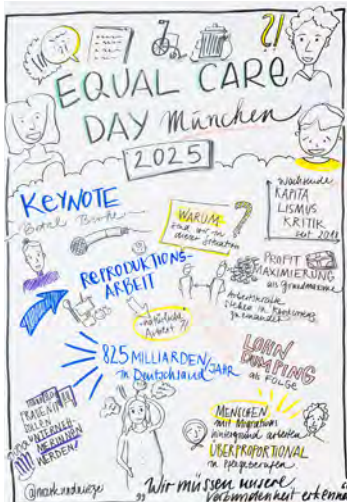 ?!
EQUAL CARE
DAY München
2025
KEYNOTE
WARUM
sind wir in
dieser Situation
?
wachsende
KAPITA
LISMUS
KRITIK
seit 2011
REPRODUKTIONS-
ARBEIT
"natürliche
Arbeit"?!
PROFIT
MAXIMIERUNG
als Grundmaxime
Arbeitskräfte
stehen in Konkurrenz
zueinander
825 MILLIARDEN/JAHR
in Deutschland
LOHN
DUMPING
als FOLGE
FRAUEN
SOLLEN
UNTERNEH
MERINNEN
WERDEN!
MENSCHEN
mit Migrations
hintergrund arbeiten
ÜBERPROPORTIONAL
in Pflegeberufen
"Wir müssen unsere
Verbundenheit erkenne